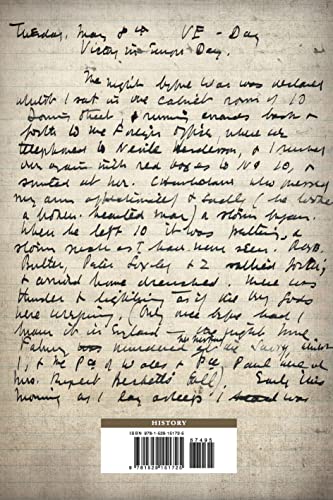 Tuesday, May 8th VE - Day
Victory in Europe Day.
The night before War was declared
whilst I sat in the cabinet room of 10
Downing Street, & running errands back &
forth to the Foreign Office, where we
telephoned to Nevile Henderson, & I rushed
over again with red boxes to No 10, &
smiled at her. Chamberlain also pressed
my arm affectionately & sadly (he looked
a broken hearted man) a storm began.
When we left 10 it was pelting, a
storm such as I had never seen. Rab
Butler, Peter Loxley & I sallied forth
& arrived home drenched. There was
thunder & lightning as if the very Gods
were weeping. (Only once before had I
known it in England - the night
was murdered
& the of Wales & Paul were at
Mrs. Rupert Becketts' Ball). Early this
morning as I lay asleep I was
HISTORY
87495